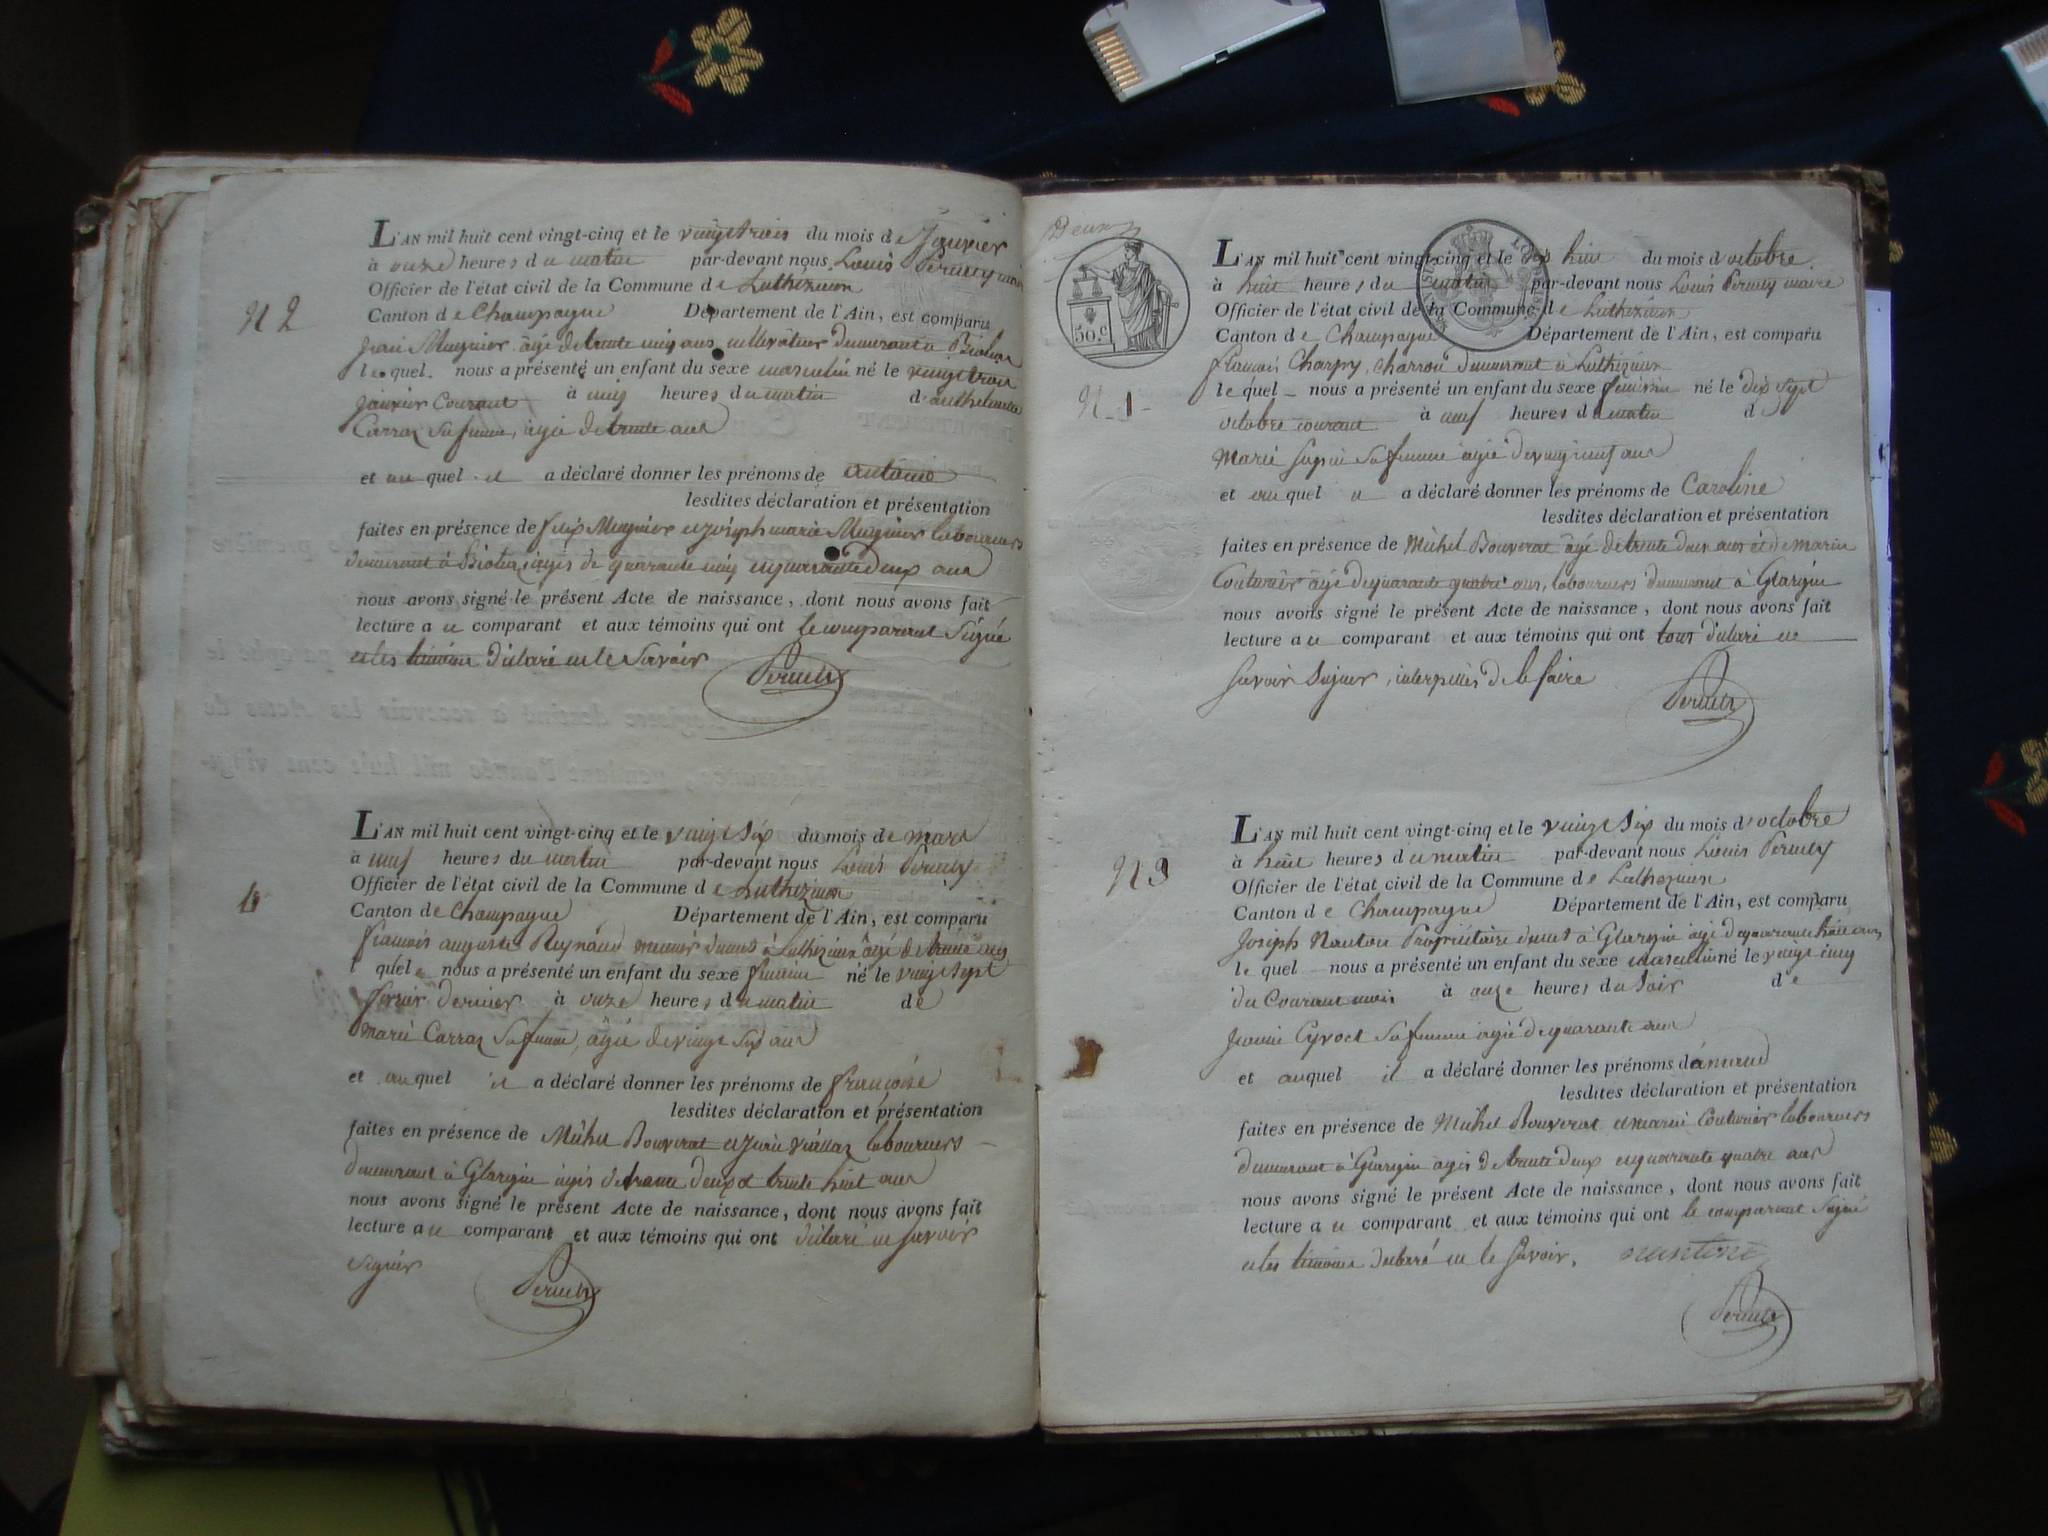 L'AN mil huit cent vingt-cinq et le vingt trois du mois de Janvier
à onze heures du matin par-devant nous Louis Perucly maire
Officier de l'état civil de la Commune de Luthézieu
Canton de Champagne Département de l'Ain, est comparu
Mugnier âgé de trente cultivateur demeurant à
lequel nous a présenté un enfant du sexe masculin né le vingt trois
janvier Courant à heures du matin d'anthelmette
Carraz sa femme, âgée de trente ans
et auquel il a déclaré donner les prénoms de antoine
lesdites déclaration et présentation
faites en présence de felix Mugnier et joseph marie Mugnier laboureurs
demeurant à âgés de quarante et quarante deux ans
nous avons signé le présent Acte de naissance, dont nous avons fait
lecture au comparant et aux témoins qui ont le comparant Signé
et les témoins déclaré ne le Savoir
N 2
L'AN mil huit cent vingt-cinq et le vingt Six du mois de mars
à neuf heures du matin par-devant nous Louis
Officier de l'état civil de la Commune de Luthézieu
Canton de Champagne Département de l'Ain, est comparu
françois auguste Reynaud meunier demt à Luthézieu âgé de trente
lequel nous a présenté un enfant du sexe féminin né le vingt Sept
fevrier dernier à onze heures du matin de
Marie Carraz Sa femme, âgée de vingt Six ans
et auquel il a déclaré donner les prénoms de françoise
lesdites déclaration et présentation
faites en présence de Michel Bouverat et laboureurs
demeurant à Glargin âgés de trente deux et trente huit ans
nous avons signé le présent Acte de naissance, dont nous avons fait
lecture au comparant et aux témoins qui ont déclaré ne Savoir
Signer
Deux
50.c
L'AN mil huit cent vingt-cinq et le dix huit du mois d'octobre
à huit heures du matin par-devant nous Louis maire
Officier de l'état civil de la Commune de Luthézieu
Canton de Champagne Département de l'Ain, est comparu
françois Charpy, charron demeurant à Luthézieu
lequel nous a présenté un enfant du sexe féminin né le dix Sept
octobre courant à neuf heures du matin de
Marie Sa femme âgée de vingt neuf ans
et auquel il a déclaré donner les prénoms de Caroline
lesdites déclaration et présentation
faites en présence de Michel Bouverat âgé de trente deux ans et de marin
Couturier âgé de quarante quatre ans, laboureurs demeurant à Glargin
nous avons signé le présent Acte de naissance, dont nous avons fait
lecture au comparant et aux témoins qui ont tous déclaré ne
Savoir Signer, interpellés de le faire
L'AN mil huit cent vingt-cinq et le vingt Six du mois d'octobre
à huit heures du matin par-devant nous Louis
Officier de l'état civil de la Commune de Luthézieu
Canton de Champagne Département de l'Ain, est comparu
Joseph Propriétaire demt à Glargin âgé de quarante huit ans
lequel nous a présenté un enfant du sexe masculin né le vingt cinq
du Courant mois à onze heures du Soir de
Sa femme âgée de quarante ans
et auquel il a déclaré donner les prénoms d'
lesdites déclaration et présentation
faites en présence de Michel Bouverat et marin Couturier laboureurs
demeurant à Glargin âgés de trente deux et quarante quatre ans
nous avons signé le présent Acte de naissance, dont nous avons fait
lecture au comparant et aux témoins qui ont le comparant Signé
et les témoins déclaré ne le Savoir.